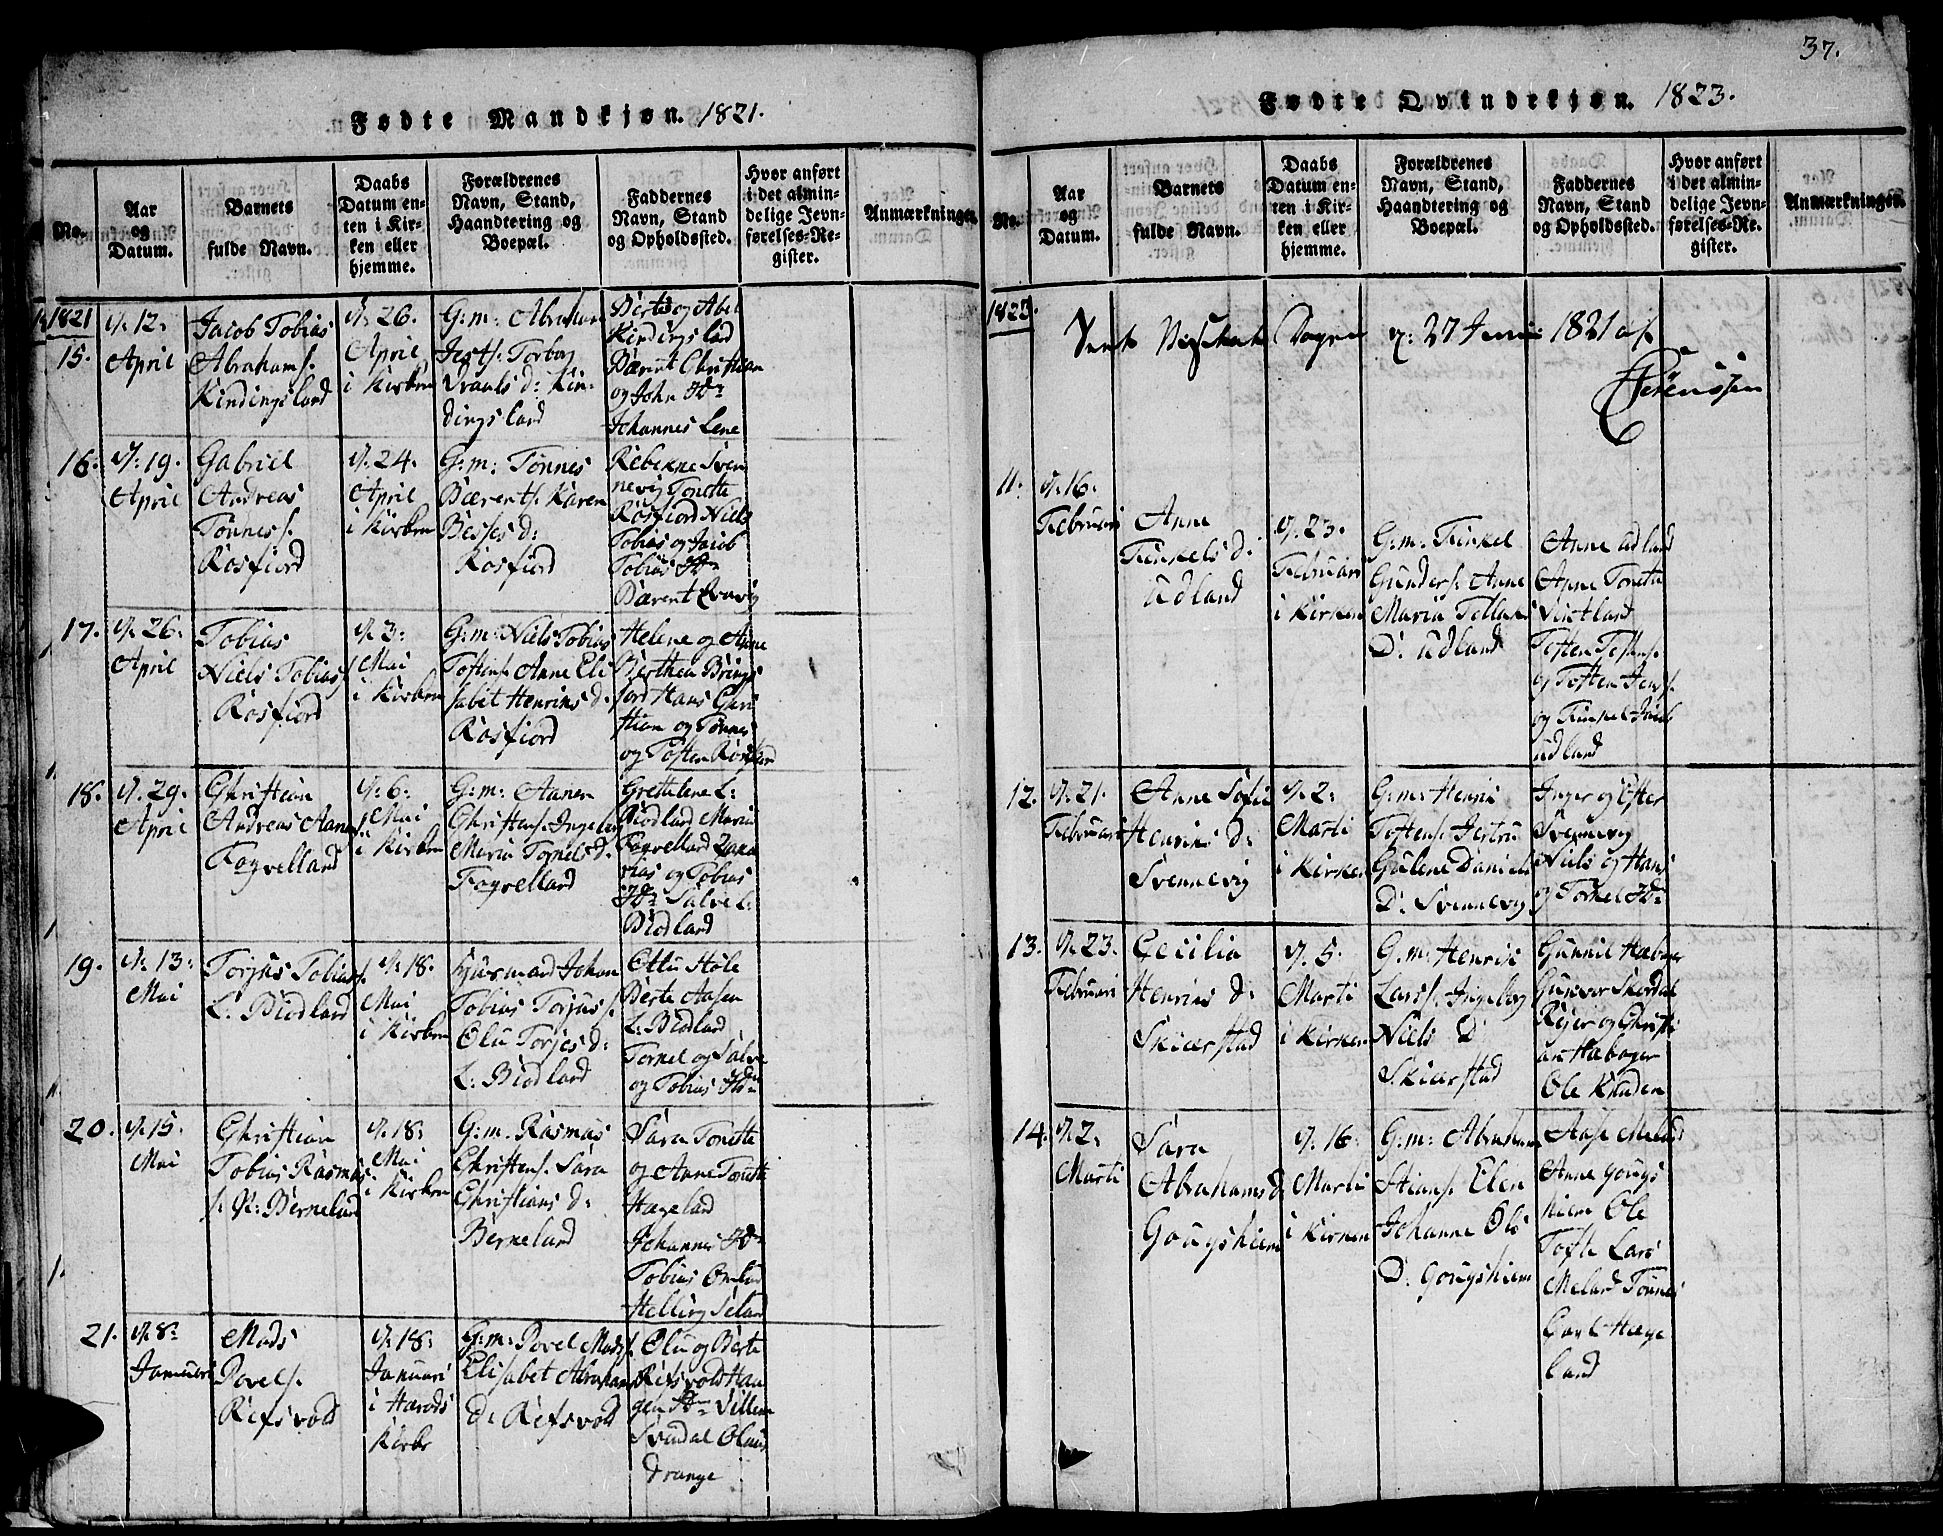 Fødte Mandkjøn. 1821.
No.
Aar
og
Datum.
Barnets
fulde Navn.
Daabs
Datum en-
ten i Kir-
ken eller
hjemme.
Forældrenes
Navn, Stand,
Haandtering og
Boepæl.
Faddernes
Navn, Stand
og Opholdssted.
Hvor anført
i det almin-
delige Jevn-
førelses-Re-
gister.
Anmærkninger.
1821
15.
d: 12:
April
Jacob Tobias
Abrahams.
Kindingsland
d: 26.
April
i Kirken
G: m: Abraham
Torbor
Kin-
dingsland
Berte og Abel
Kindingsland
Bærent Christian
og John Do
Johannes Lene
16.
d: 19.
April
Gabriel
Andreas
Tønnes s.
Rosfiord
d: 24.
April
i Kirken
G: m: Tønnes
Bærents. Karen
d:
Rosfiord
Rebekke Sven
nevig Tonette
Rosfiord Niels
Tobias og Jacob
Tobias Do
Bærent
17.
d: 26:
April
Tobias
Niels Tobias s.
Rosfiord
d: 3:
Mai
i Kirken
G: m: Niels Tobias
Anne Eli
sabet Henriks d:
Rosfiord
Helene og Anne
Berthea Brings
iord Hans Chri
stian og Tønnes
og Tosten Rosfiord
18.
d. 29.
April
Christian
Andreas Aanen
Fogvelland
d: 6:
Mai
i Kirken
G: m: Aanen
Christens. Ingebor
Maria Tornels d:
Fogvelland
Grethelene L:
Biodland Maria
Fogvelland Zaka
rias og Tobias
Do Salve L:
Biodland
19.
d: 13:
Mai
Torjus Tobias s.
L: Biodland
d: 18.
Mai
i Kirken
Huusmand Johan
Tobias Torjus s.
Olu Torjes d:
L: Biodland
Ollu Høle
Berte Aasen
L: Biodland
Tornel og Salve
og Tobias Do
20.
d. 15.
Mai
Christian
Tobias Rasmus
s. N: Berneland
d. 18:
Mai
i Kirken
G: m. Rasmus
Christens. Sara
Christians d:
Berneland
Sara Tonette
og Anne Tonette
Hægeland
Johannes Do
Tobias Omland
Helling Seland
21.
d. 8:
Januari
Mads
Povels.
Refsvold
d. 18:
Januari
i Harods
Kirke
G: m: Povel Mads s.
Elisabet Abrahams
d: Refsvold
Olu og Berte
Refsvold Haa
gen Do Villum
Svindal Olaus
Drange
37.
Fødte Qvindekjøn. 1823.
No.
Aar
og
Datum.
Barnets
fulde Navn.
Daabs
Datum en-
ten i Kir-
ken eller
hjemme.
Forældrenes
Navn, Stand,
Haandtering og
Boepæl.
Faddernes
Navn, Stand
og Opholdssted.
Hvor anført
i det almin-
delige Jevn-
førelses-Re-
gister.
Anmærkninger.
1823.
d: 27 Juni 1821 af
Sørenssen
11.
d. 16.
Februari
Anne
Finkels d.
Udland
d. 23.
Februari
i Kirken
G: m. Finkel
Gunders. Anne
Maria Tellas
D: Udland
Anne Udland
Anne Tonette
Vintland
Tosten
og Tosten
og Finkel Jacob
Udland
12.
d. 21.
Februari
Anne Sofie
Henriks d:
Svennevig
d. 2:
Marti
i Kirken
G: m: Henrik
Tostens. Jertru
Gulene Daniels
D: Svennevig
Inger og Ester
Svennevig
Niels og Hans
og Tornel Do
13.
d. 23.
Februari
Cecilia
Henriks d:
Skierstad
d. 5.
Marti
i Kirken
G. m: Henrik
Lars s. Ingeborg
Niels D
Skierstad
Gunnil Habager
Gunvor Skerdal
Rejer og Christi
an Habager
Ole Knuden
14.
d. 2:
Marti
Sara
Abrahams d.
Gougshiem
d. 16.
Marti
i Kirken
G: m: Abraham
Stians. Elen
Johanne Ols
D. Gougshiem
Aase Meland
Anne Gougs
hiem Ole
Tofte Lars
Meland Tønnes
Carl Hæge
land